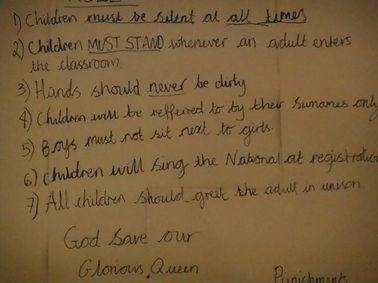 1) Children must be silent at all times
2) Children MUST STAND whenever an adult enters
the classroom.
3) Hands should never be dirty
4) Children will be reffered to by their surnames only
5) Boys must not sit next to girls.
6) Children will sing the National at registration
7) All children should greet the adult in unison.
God Save our
Glorious Queen
Punishments